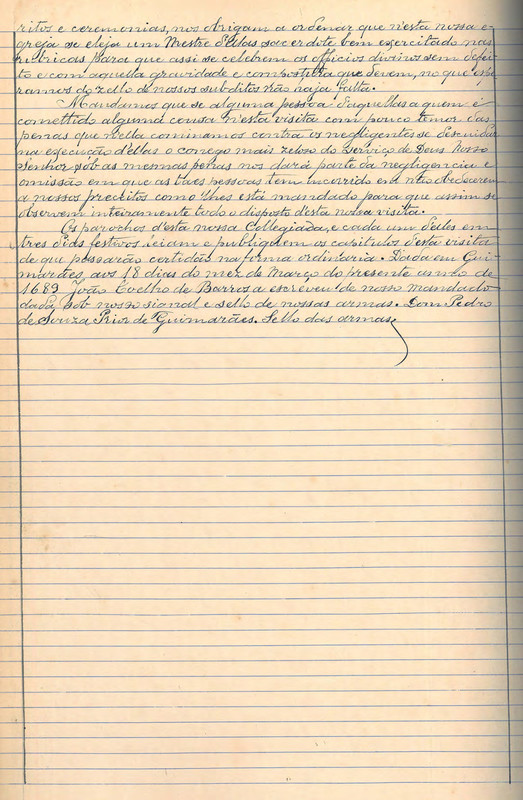 ritos e ceremonias, nos obrigam a ordenar que n'esta nossa e-
greja se eleja um Mestre d'ellas sacerdote bem exercitado nas
rubricas para que assi se celebrem os officios divinos sem defei-
to e com aquella gravidade e compostura que devem, no que espe-
ramos do zello de nossos subditos não haja falta.
Mandamos que se alguma pessoa d'aquellas a quem é
comettido alguma cousa n'esta visita com pouco temor das
penas que n'ella cominamos contra os negligentes se descuidar
na execução d'ellas o conego mais zeloso do serviço de Deus Nosso
Senhor sob as mesmas penas nos dará parte da negligencia e
omissão em que as taes pessoas tem incorrido em não obedecerem
a nossos preceitos como lhes está mandado para que assim se
observem inteiramente tudo o disposto d'esta nossa visita.
Os parochos d'esta nossa Collegiada, e cada um d'elles em
tres dias festivos leiam e publiquem os capitulos d'esta visita
de que passarão certidão na forma ordinaria. Dada em Gui-
marães, aos 18 dias do mez de Março do presente anno de
1689 João Coelho de Barros a escreveu de nosso mandado
dada sob nosso signal e sello de nossas armas. Dom Pedro
de Souza Prior de Guimarães. Sello das armas.